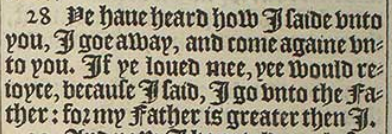 28 Ye haue heard how I saide vnto
you, I goe away, and come againe vn-
to you. If ye loued mee, yee would re-
ioyce, because I said, I go vnto the Fa-
ther: for my Father is greater then I.